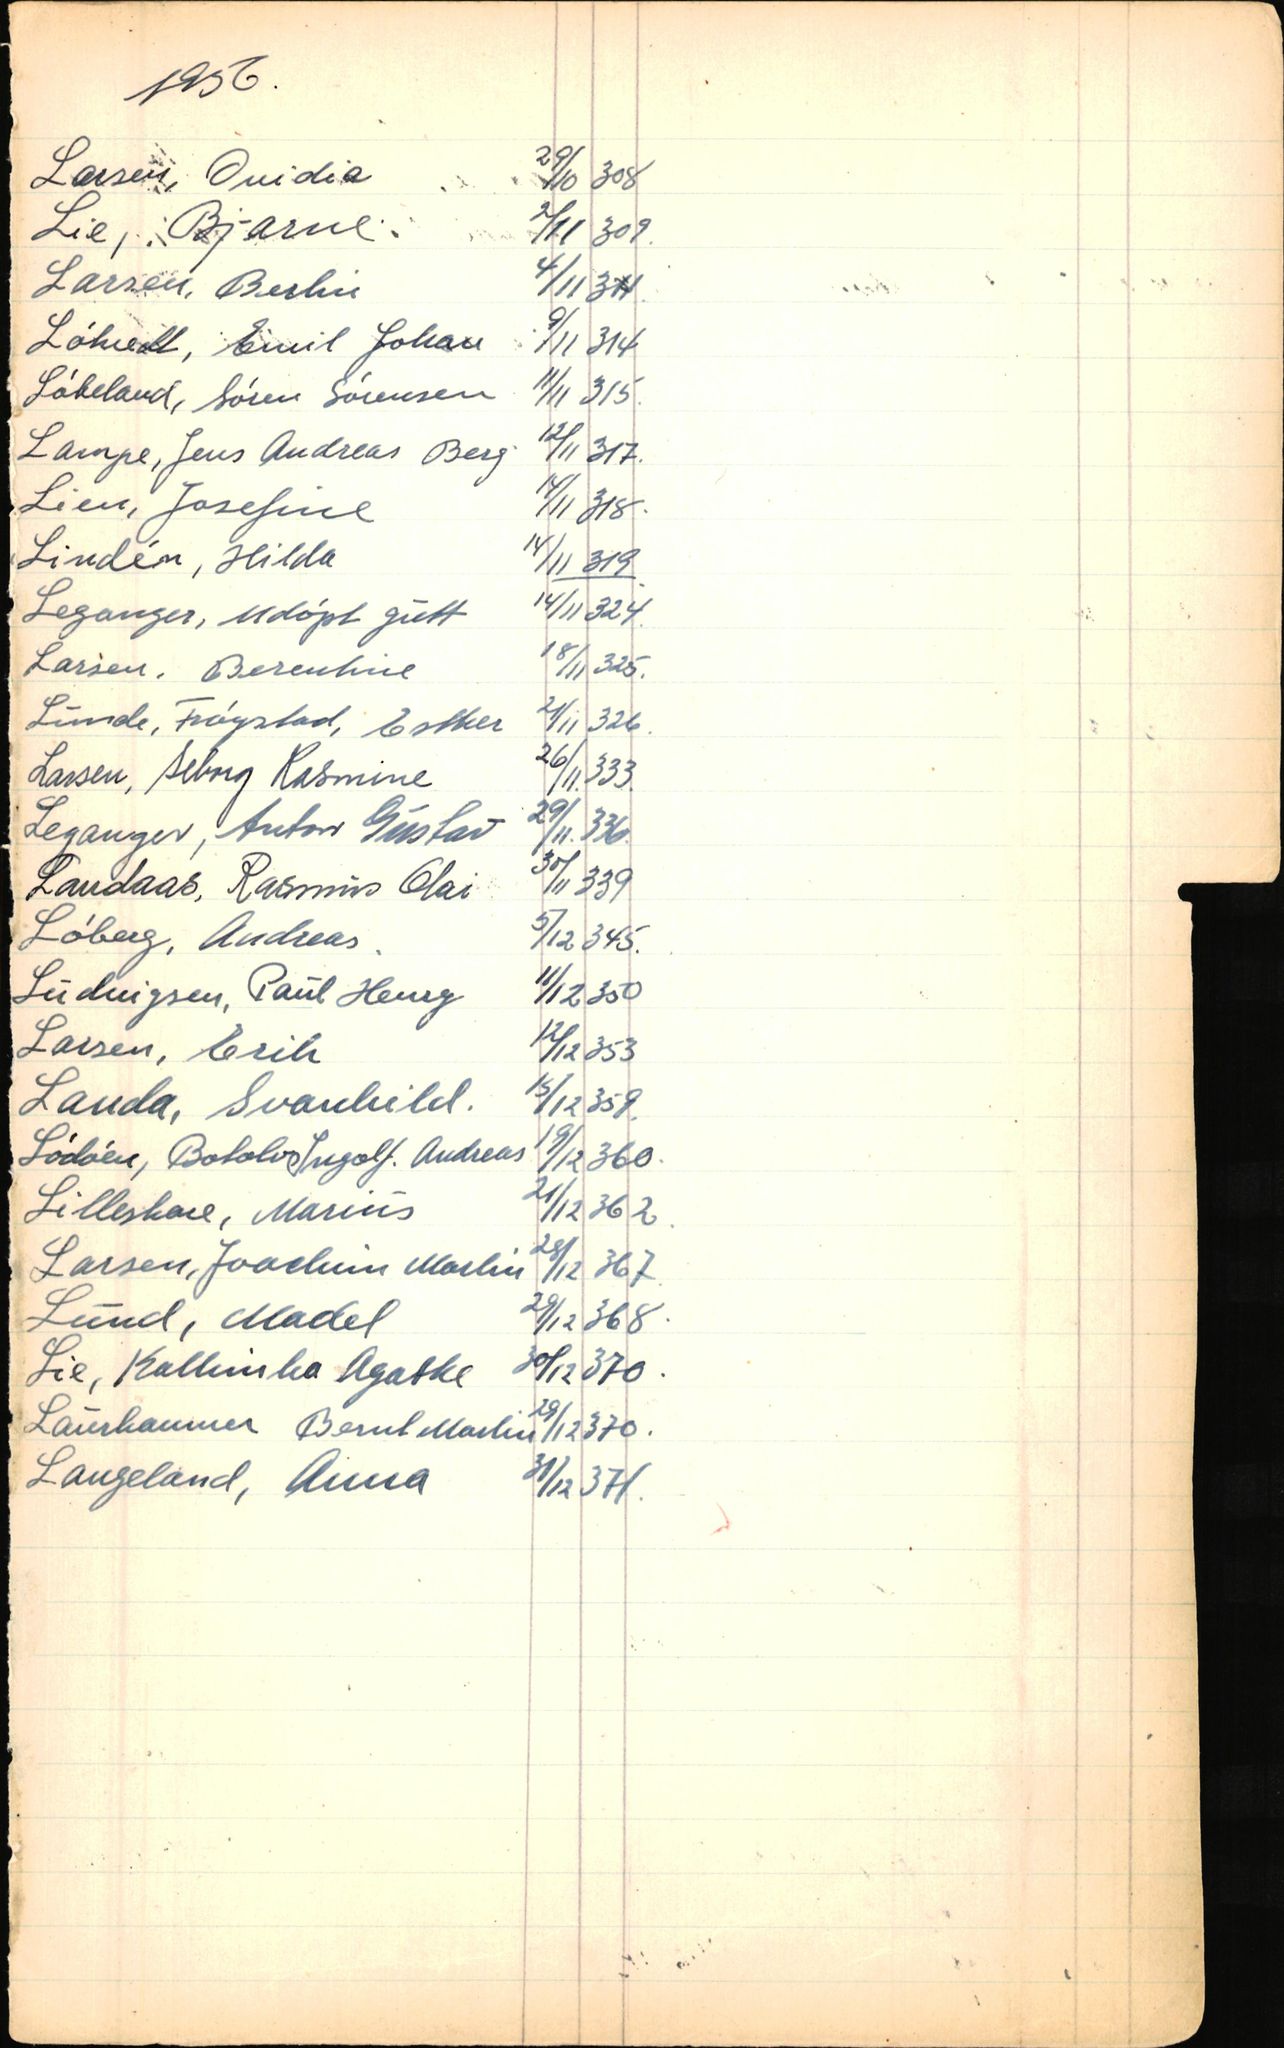 1956.
Larsen, Ovidia 29/10 308
Lie, Bjarne. 2/11 309.
Larsen, Berlin 4/11 311.
Emil Johan 9/11 314
Lökeland, Sören Sörensen 11/11 315.
Lampe, Jens Andreas Berg 12/11 317.
Lien, Josefine 14/11 318.
Lindén, Hilda 14/11 319
Leganger, Udöpt gutt 14/11 324.
Larsen, Berentine 18/11 325.
Lunde, Frøystad, Esther 21/11 326.
Larsen, Seborg Rasmine 26/11. 333.
Leganger, Anton Gustav 29/11. 336.
Landaas, Rasmus Olai 30/11 339
Löberg, Andreas. 5/12 345.
Ludvigsen, Paul Henry 11/12 350
Larsen, Erik 12/12 353
Landa, Svanhild. 15/12 359.
Lödöen, Botolv Ingolf. Andreas 19/12 360.
Lilleskare, Marius 21/12 362.
Larsen, Joachim Martin 28/12 367.
Lund, Madel 29/12 368.
Lie, Kathinka Agathe 30/12 370.
Laurhammer Bernt Martin 29/12 370.
Langeland, Anna 31/12 371.